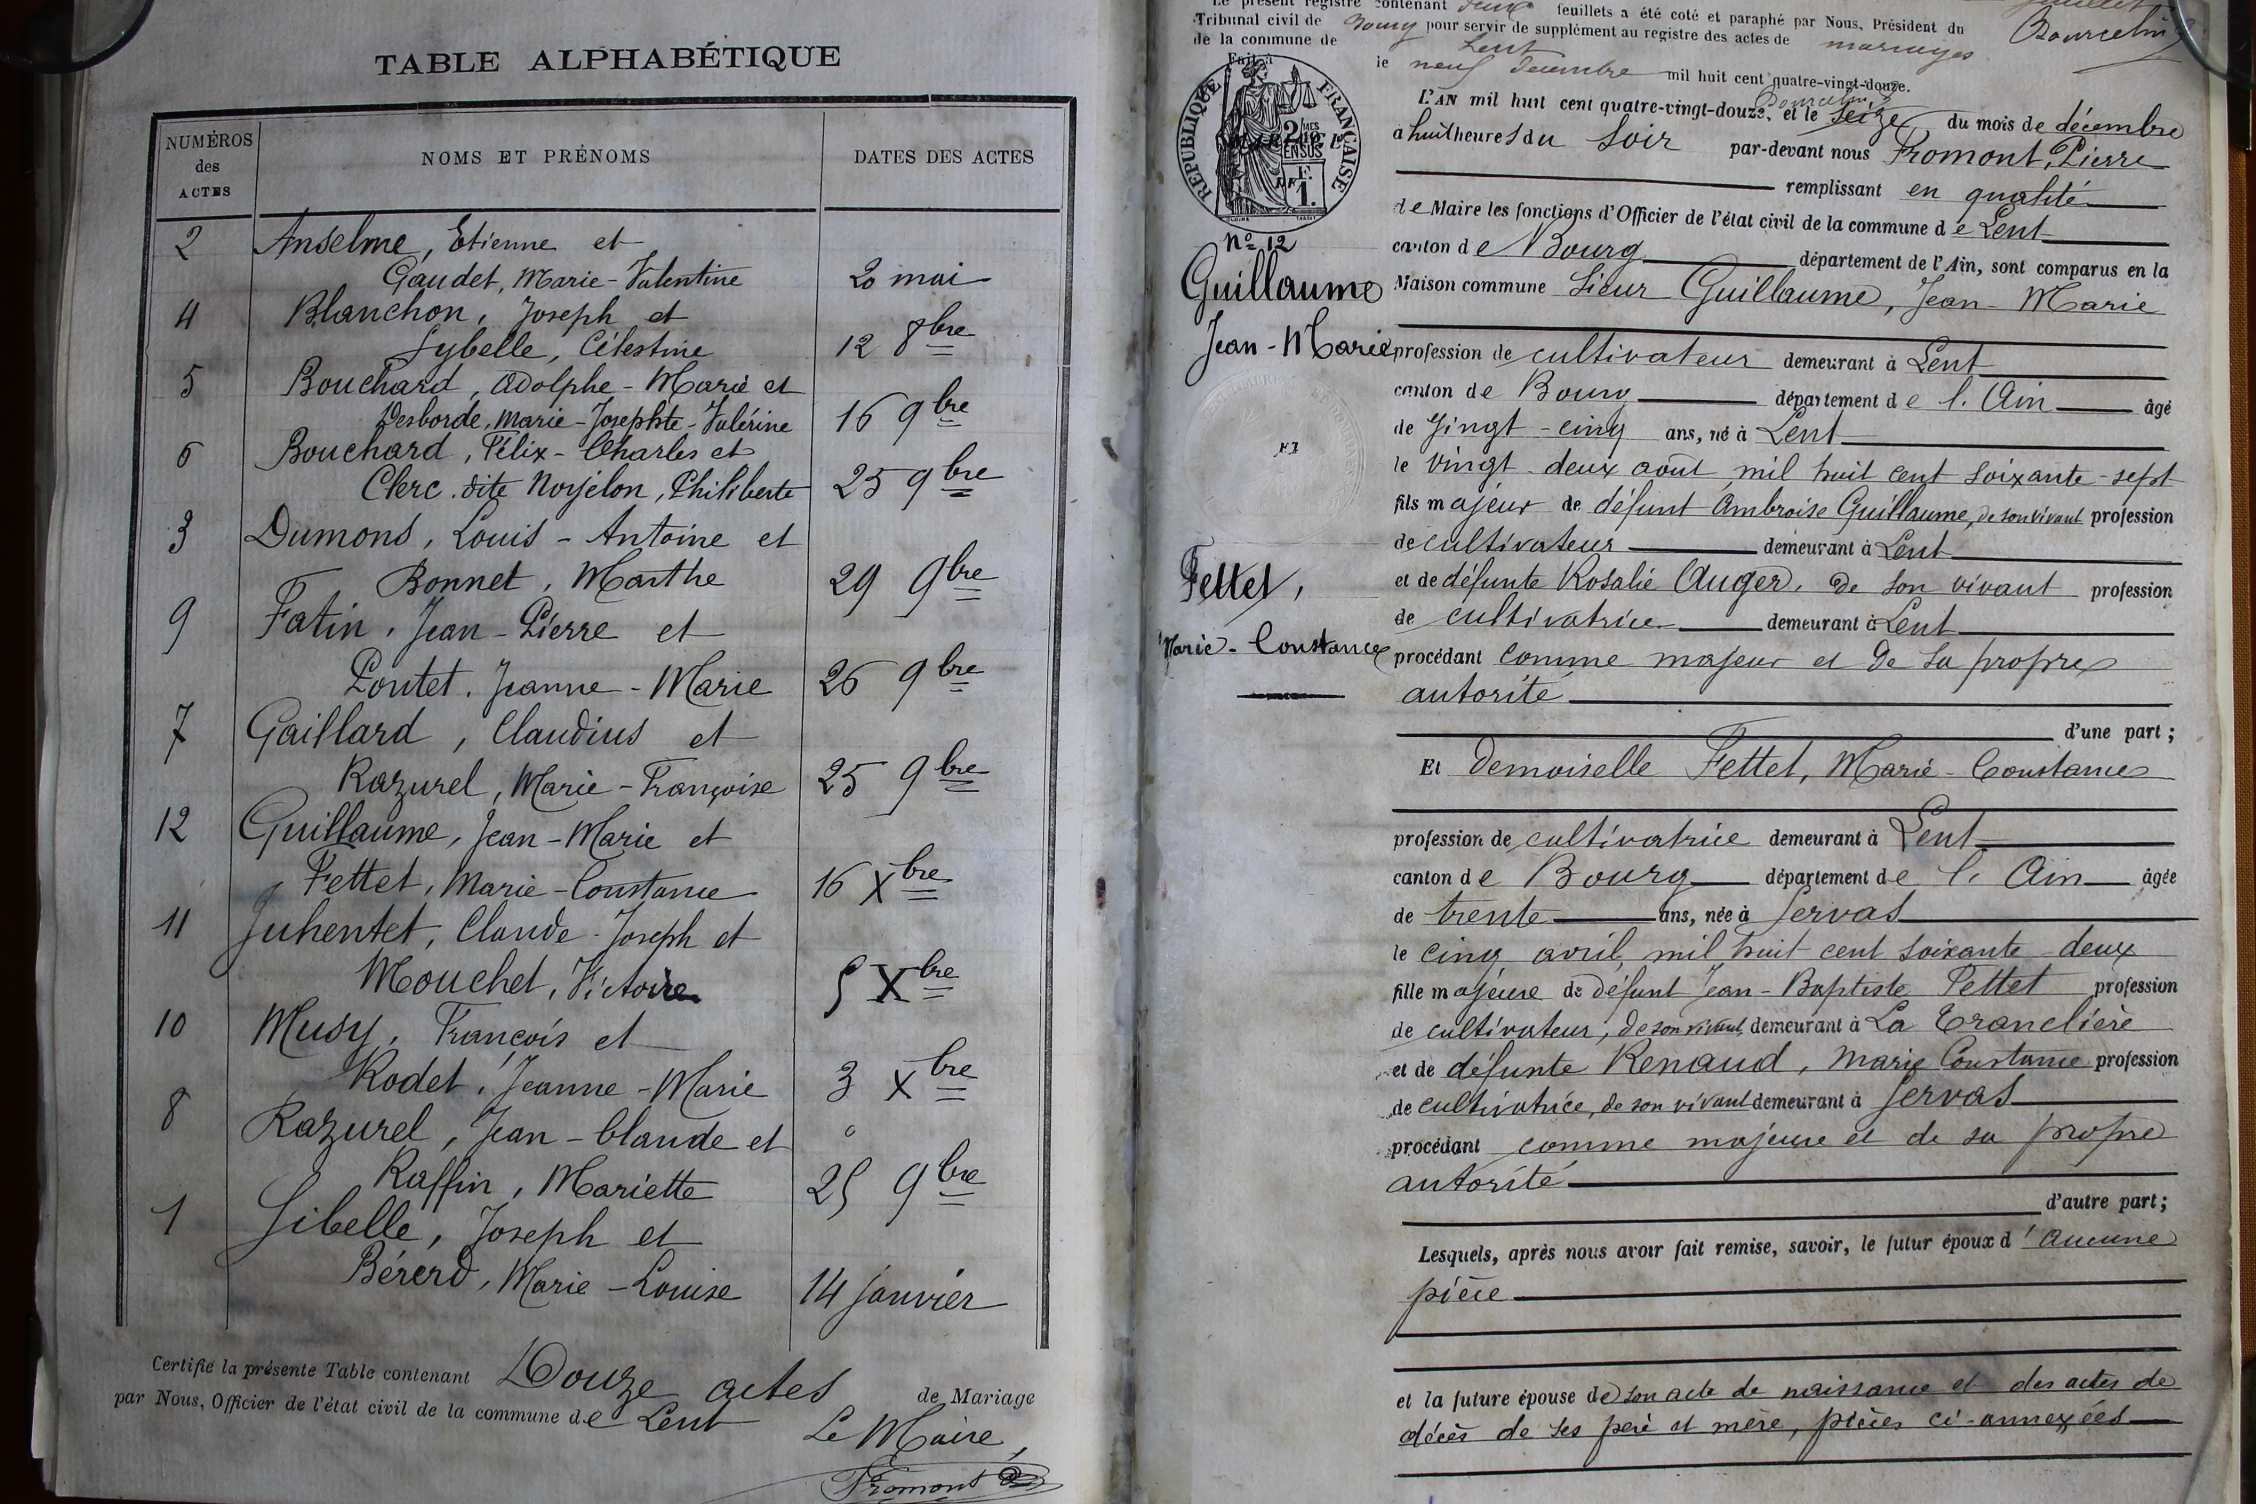 TABLE ALPHABÉTIQUE
NUMÉROS des ACTES
NOMS ET PRÉNOMS
DATES DES ACTES
2 Anselme, Etienne et
Gaudet, Marie-Valentine 20 mai
4 Blanchon, Joseph et
Sybelle, Célestine 12 8bre
5 Bouchard, Adolphe-Marie et
Desborde, Marie-Josephte-Valérine 16 9bre
6 Bouchard, Félix-Charles et
Clerc dite Noyélon, Philiberte 25 9bre
3 Dumons, Louis-Antoine et
Bonnet, Marthe 29 9bre
9 Fatin, Jean-Pierre et
Pontet, Jeanne-Marie 26 9bre
7 Gaillard, Claudius et
Razurel, Marie-Françoise 25 9bre
12 Guillaume, Jean-Marie et
Fettet, Marie-Constance 16 Xbre
11 Juhentet, Claude-Joseph et
Mouchet, Victoire 5 Xbre
10 Musy, François et
Rodet, Jeanne-Marie 3 Xbre
8 Razurel, Jean-Claude et
Raffin, Mariette 25 9bre
1 Sibelle, Joseph et
Bérerd, Marie-Louise 14 janvier
Certifié la présente Table contenant Douze actes de Mariage
par Nous, Officier de l'état civil de la commune de Lent
Le Maire,
Fromont
Le présent registre contenant deux feuillets a été coté et paraphé par Nous, Président du
Tribunal civil de Bourg pour servir de supplément au registre des actes de mariages
de la commune de Lent
Fait à le neuf décembre mil huit cent quatre-vingt-douze.
RÉPUBLIQUE FRANÇAISE
2 MES
EN SUS
F.
1.
L'AN mil huit cent quatre-vingt-douze, et le seize du mois de décembre
à huit heures du soir par-devant nous Fromont, Pierre
remplissant en qualité
de Maire les fonctions d'Officier de l'état civil de la commune de Lent
canton de Bourg département de l'Ain, sont comparus en la
Maison commune Sieur Guillaume, Jean-Marie
No 12
Guillaume
Jean-Marie
profession de cultivateur demeurant à Lent
canton de Bourg département de l'Ain âgé
de Vingt-cinq ans, né à Lent
le vingt-deux août mil huit cent soixante-sept
fils majeur de défunt Ambroise Guillaume, de son vivant profession
de cultivateur demeurant à Lent
et de défunte Rosalie Auger, de son vivant profession
de cultivatrice demeurant à Lent
procédant comme majeur et de sa propre
autorité
d'une part ;
Fettet,
Marie-Constance
Et Demoiselle Fettet, Marie-Constance
profession de cultivatrice demeurant à Lent
canton de Bourg département de l'Ain âgée
de trente ans, née à Servas
le cinq avril mil huit cent soixante deux
fille majeure de défunt Jean-Baptiste Fettet profession
de cultivateur, de son vivant demeurant à La Tranclière
et de défunte Renaud, Marie Constance profession
de cultivatrice, de son vivant demeurant à Servas
procédant comme majeure et de sa propre
autorité
d'autre part ;
Lesquels, après nous avoir fait remise, savoir, le futur époux d'aucune
pièce
et la future épouse de son acte de naissance et des actes de
décès de ses père et mère, pièces ci-annexées